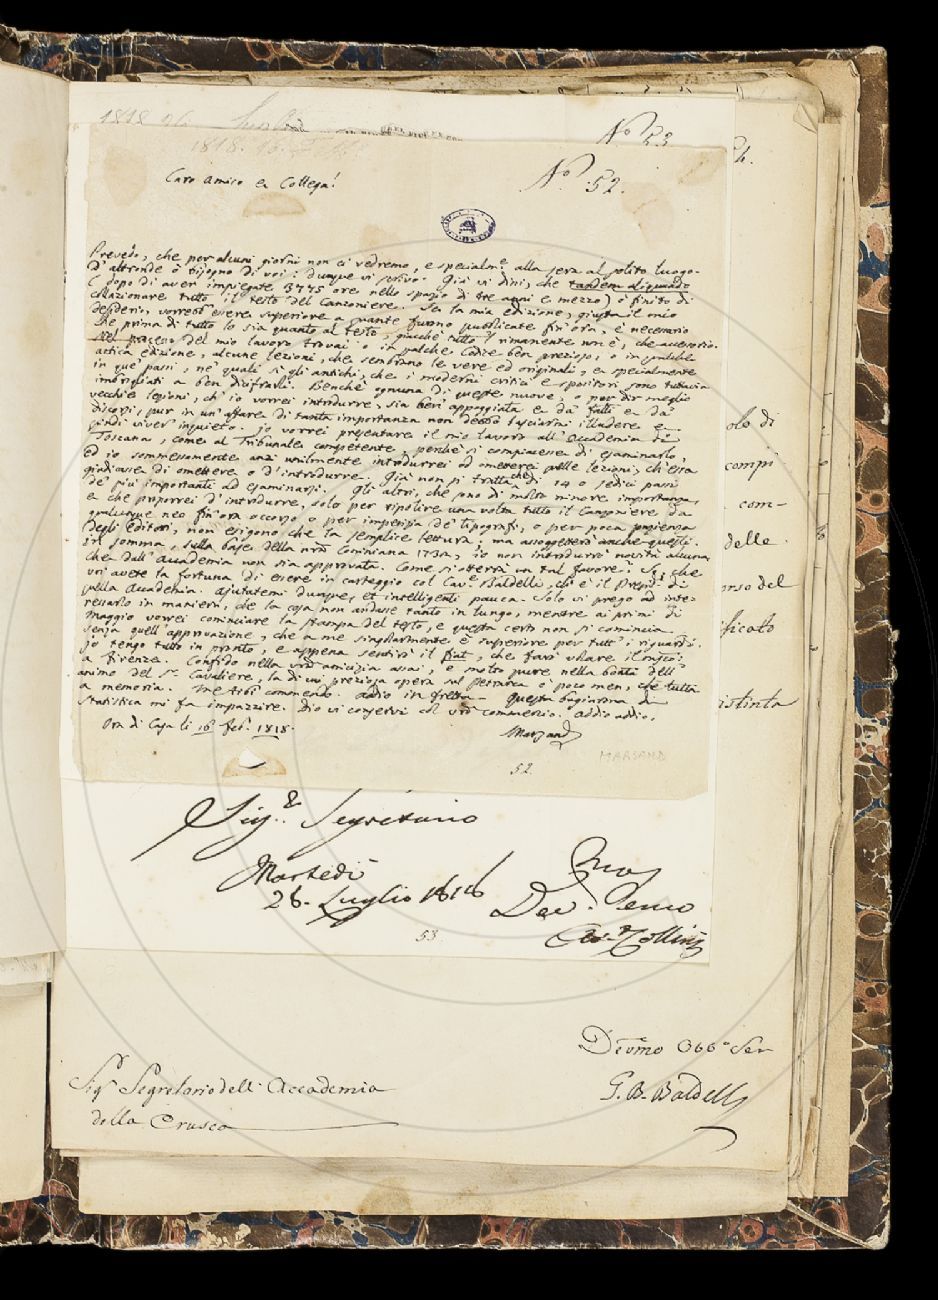 1818. 26. Luglio
N.º 53.
1818. 16. Febb.
N.º 52.
Caro Amico e Collega!
Prevedo, che per alcuni giorni non ci vedremo, e specialm.e alla sera al solito luogo.
D'altronde ò bisogno di voi: dunque vi scrivo. Già vi dissi, che tandem aliquando
( dopo di aver impiegate 3775 ore nello spazio di tre anni e mezzo) ò finito di
collazionare tutto il testo del Canzoniere. Se la mia edizione, giusta il mio
desiderio, vorrebb'essere superiore a quante furono pubblicate fin'ora, è necessario
che prima di tutto lo sia quanto al testo, giacchè tutto il rimanente non è, che accessorio.
Nel processo del mio lavoro trovai o in qualche Codice ben prezioso, o in qualche
antica edizione, alcune lezioni, che sembrano le vere ed originali, e specialmente
in que' passi, ne' quali sì gli antichi, che i moderni critici e spositori sono tuttavia
imbrogliati a ben dicifrarli. Benchè ognuna di queste nuove, o per dir meglio
vecchie lezioni, ch'io vorrei introdurre, sia ben appoggiata e da' fatti e da'
discorsi, pur in un affare di tanta importanza non debbo lasciarmi illudere e
quindi viver inquieto. Io vorrei presentare il mio lavoro all'Accademia di
Toscana, come al Tribunale competente, perchè si compiacesse di esaminarlo,
ed io sommessamente anzi umilmente introdurrei od ometterei quelle lezioni, ch'essa
giudicasse di omettere o d'introdurre. Già non si tratta che di 14 o sedici passi
de' più importanti ad esaminarsi. Gli altri, che sono di molto minore importanza,
e che proporrei d'introdurre, solo per ripolire una volta tutto il Canzoniere da
qualunque neo fin'ora occorso o per imperizia de' tipografi, o per poca pazienza
degli Editori, non esigono che la semplice lettura; ma assoggetterei anche questi.
In somma, sulla base della nrã Cominiana 1732, io non introdurrei novità alcuna,
che dall'Accademia non sia approvata. Come si otterrà un tal favore? So, che
voi avete la fortuna di essere in carteggio col Cav.e Baldelli, ch'è il Presid.e di
quella Accademia. Ajutatemi dunque, et intelligenti pauca. Solo vi prego ad inte-
ressarlo in maniera, che la cosa non andasse tanto in lungo, mentre ai primi di
Maggio vorrei cominciare la stampa del testo, e questa certo non si comincia
senza quell'approvazione, che a me singolarmente è superiore per tutt'i riguardi.
Io tengo tutto in pronto, e appena sentirò il fiat, che farò volare il
a Firenze. Confido nella vrã amicizia assai, e molto pure nella bontà dell'
animo del S.r Cavaliere, la di cui preziosa opera sul Petrarca ò poco men, che tutta
a memoria. Me tibi commendo. Addio in fretta. Questa bugiarona di
Statistica mi fa impazzire. Dio vi conservi col vrõ commercio. Addio addio.
Ora di Casa li 16 feb.º 1818.
Marsand
MARSAND
52.
Sig.r Segretario
Martedì
26. Luglio 1818
Dev.
53.
Sig.r Segretario dell'Accademia
della Crusca
Devmo Obb.º Ser
G. B. Baldelli
olo di
compi
com-
delle
orso del
ificato
istinta